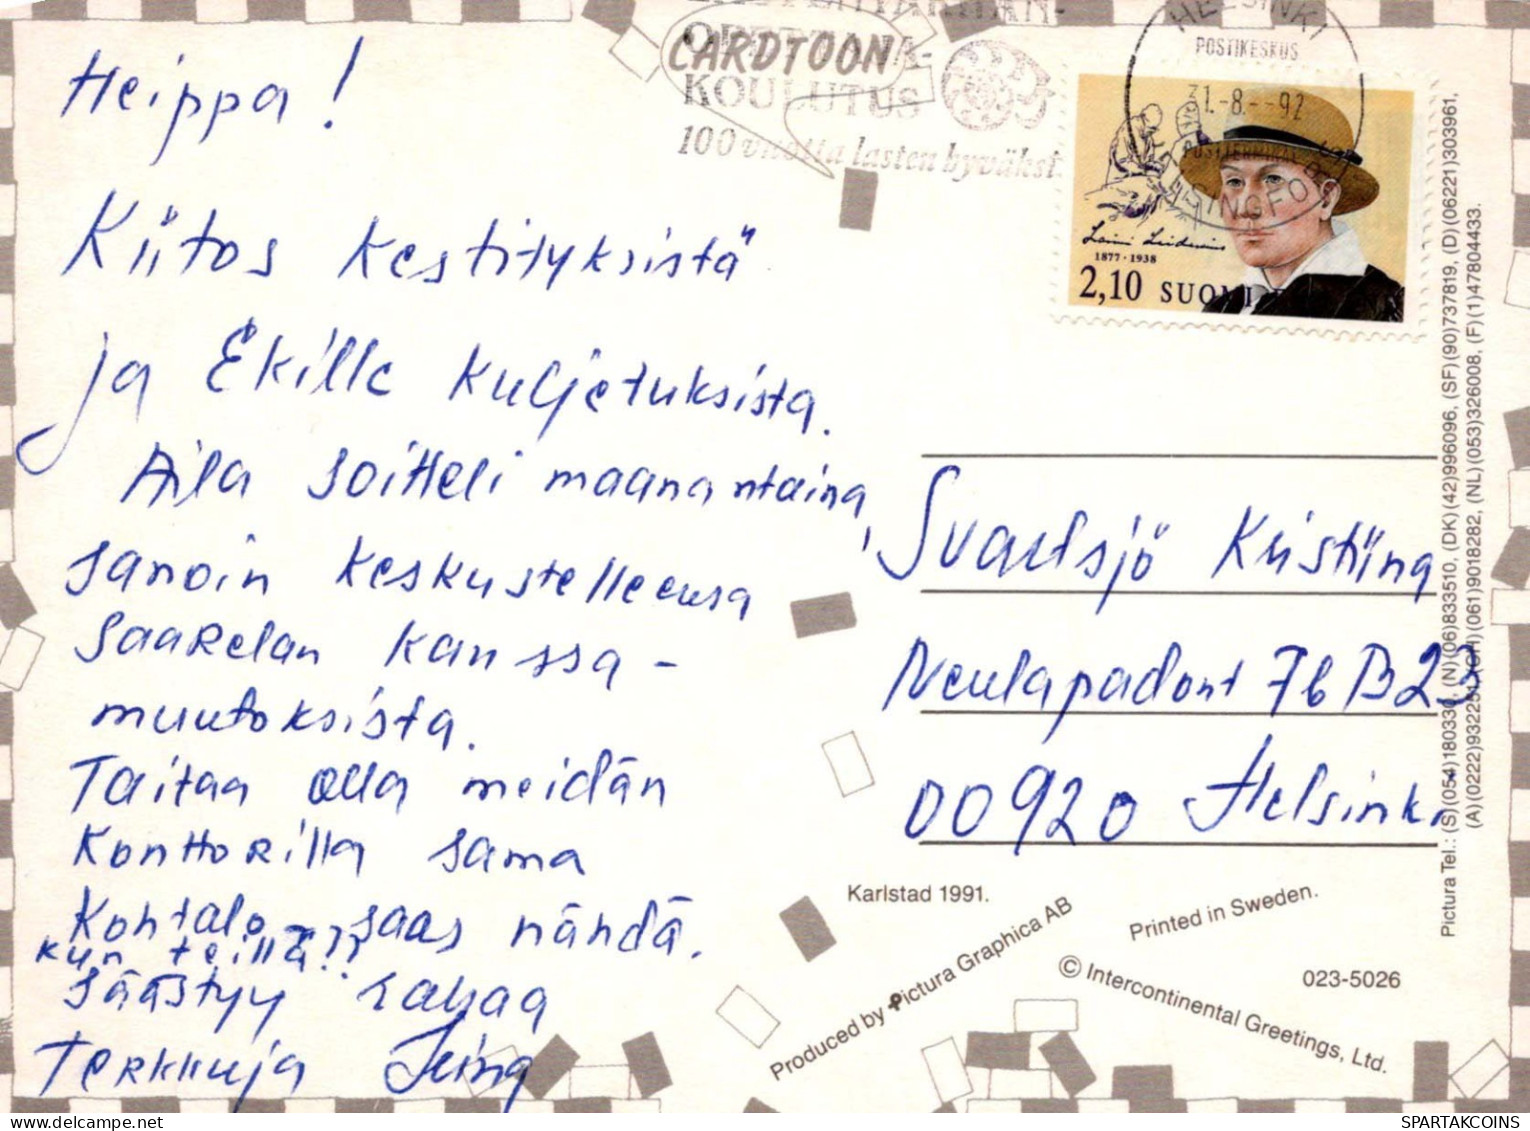 Heippa!
Kiitos kestityksistä
ja Ekille kuljetuksista.
Aila soitteli maanantaina,
sanoin keskustelleensa
Saarelan kanssa -
muutoksista.
Taitaa olla meidän
Konttorilla sama
Kohtalo, saas nähdä.
kun teillä??
Säästyy rahaa
Terkkuja
CARDTOON
KOULUTUS
100 vuotta lasten hyväksi
HELSINKI
POSTIKESKUS
31.-8.--92
HELSINGFORS
1877 · 1938
2,10 SUOMI
Svartsjö Kristiina
Neulapadont 7b B23
00920 Helsinki
Karlstad 1991.
Produced by Pictura Graphica AB
Printed in Sweden.
© Intercontinental Greetings, Ltd.
023-5026
Pictura Tel.: (S)(054)180330, (N)(06)833510, (DK)(42)996096, (SF)(90)737819, (D)(06221)303961,
(A)(0222)932251, (CH)(061)9018282, (NL)(053)326008, (F)(1)47804433.
www.spartakcoins.com
SPARTAKCOINS